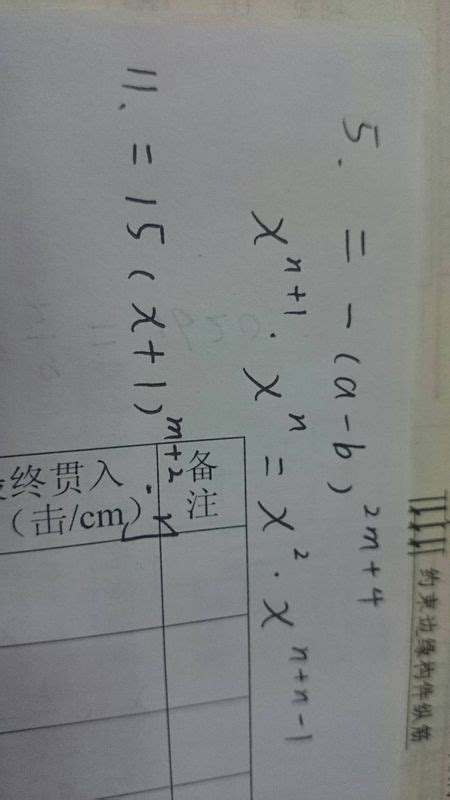 5. = -(a-b)^{2m+4}
x^{n+1} · x^n = x^2 · x^{n+n-1}
11. = 15(x+1)^{m+2
备注
终贯入
（击/cm）
约束边缘构件纵筋